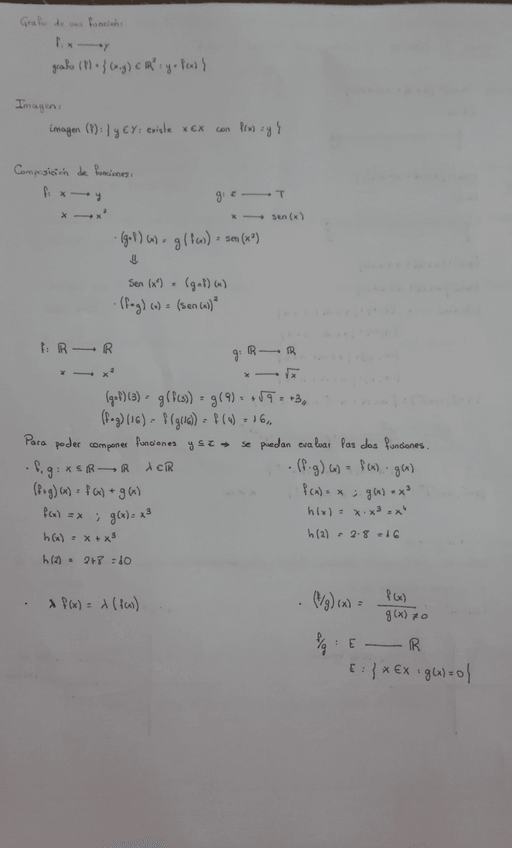 Grafo de una función:
f: x ⟶ y
grafo (f) = { (x,y) ∈ ℝ² : y = f(x) }
Imagen:
imagen (f): { y ∈ Y : existe x ∈ X con f(x) = y }
Composición de funciones:
f: x ⟶ y g: z ⟶ T
x ⟶ x² x ⟶ sen(x)
· (g∘f)(x) = g(f(x)) = sen(x²)
⇓
sen(x²) = (g∘f)(x)
· (f∘g)(x) = (sen(x))²
f: ℝ ⟶ ℝ g: ℝ ⟶ ℝ
x ⟶ x² x ⟶ √x
(g∘f)(3) = g(f(3)) = g(9) = +√9 = +3,,
(f∘g)(16) = f(g(16)) = f(4) = 16,,
Para poder componer funciones y ≤ z → se puedan evaluar las dos funciones.
· f, g : x ≤ ℝ ⟶ ℝ λ ∈ ℝ · (f·g)(x) = f(x) · g(x)
(f+g)(x) = f(x) + g(x) f(x) = x ; g(x) = x³
f(x) = x ; g(x) = x³ h(x) = x · x³ = x⁴
h(x) = x + x³ h(2) = 2·8 = 16
h(2) = 2+8 = 10
· λ f(x) = λ (f(x)) · (f/g)(x) = f(x) / g(x) ≠ 0
f/g : E ⟶ ℝ
E : { x ∈ X : g(x) = 0 }